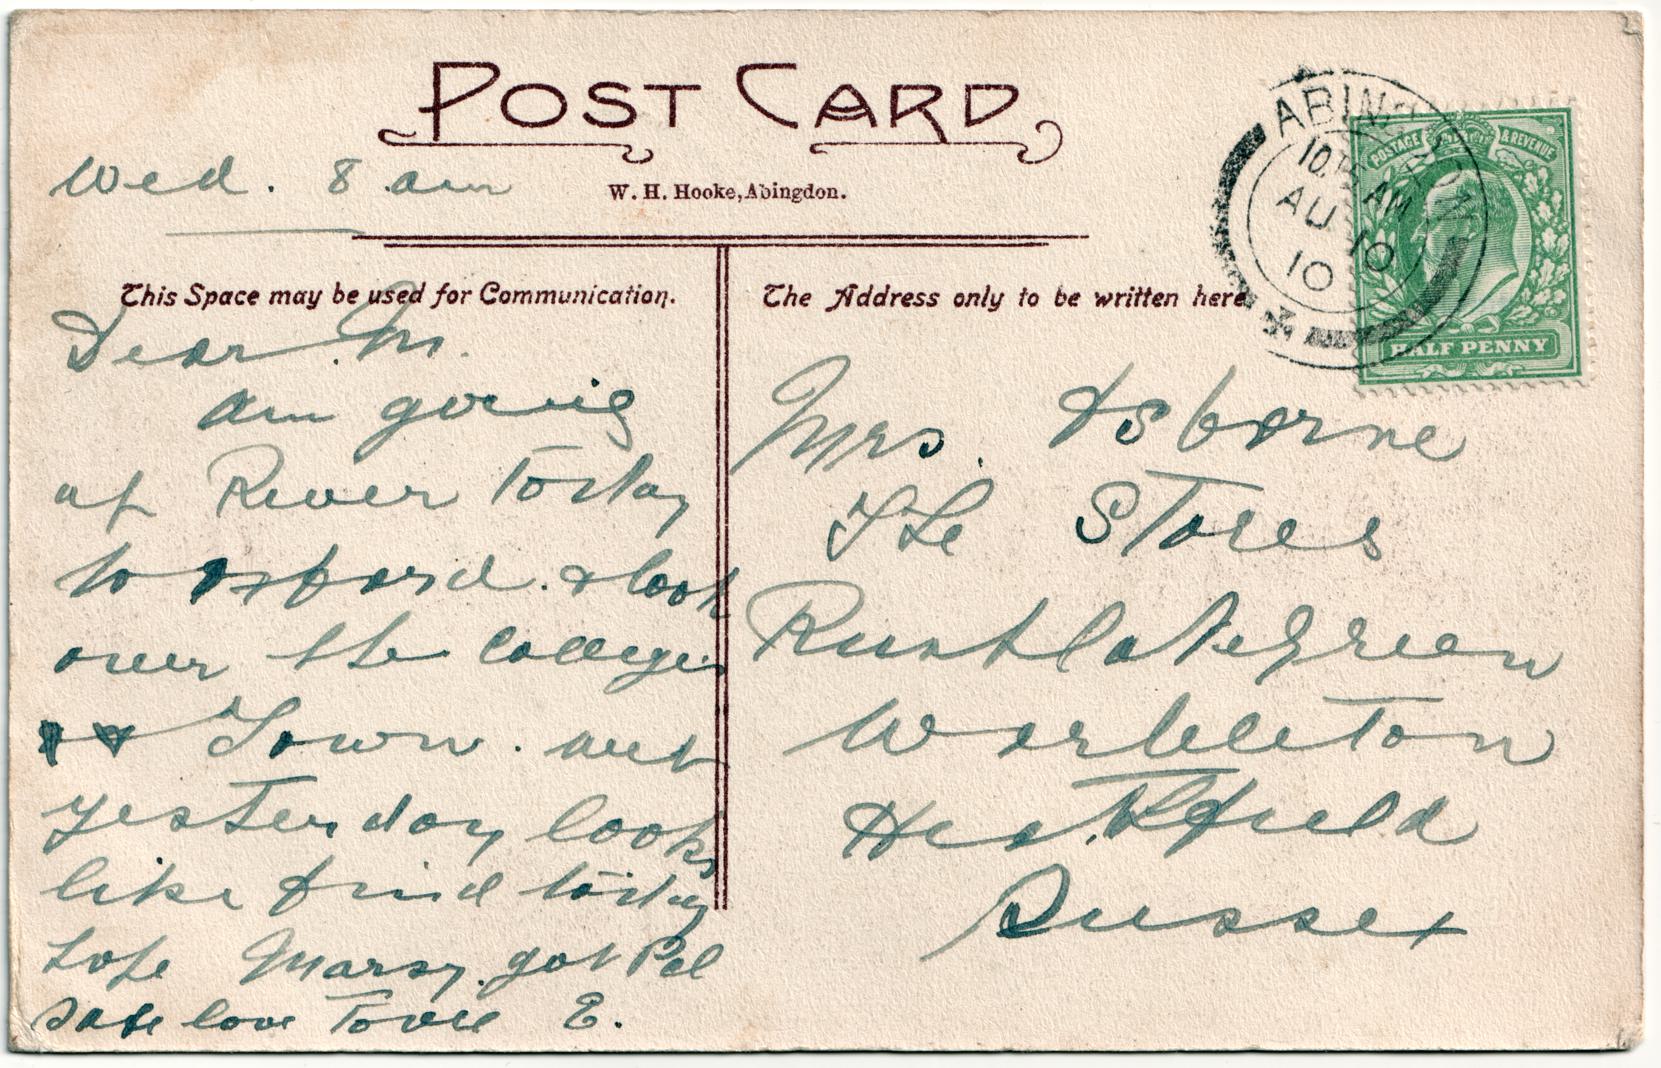 POST CARD
W. H. Hooke, Abingdon.
Wed. 8 am
This Space may be used for Communication.
Dear M.
am going
up River Today
to Oxford. & look
over the Colleges
& Town. wet
yesterday looks
like find today
hope got Pcl
safe love E.
The Address only to be written here
ABINGDON
10. AM
AU 10
10
POSTAGE & REVENUE
HALF PENNY
Mrs. Osborne
The Stores
Runtlategreen
Warbleton
Heathfield
Sussex